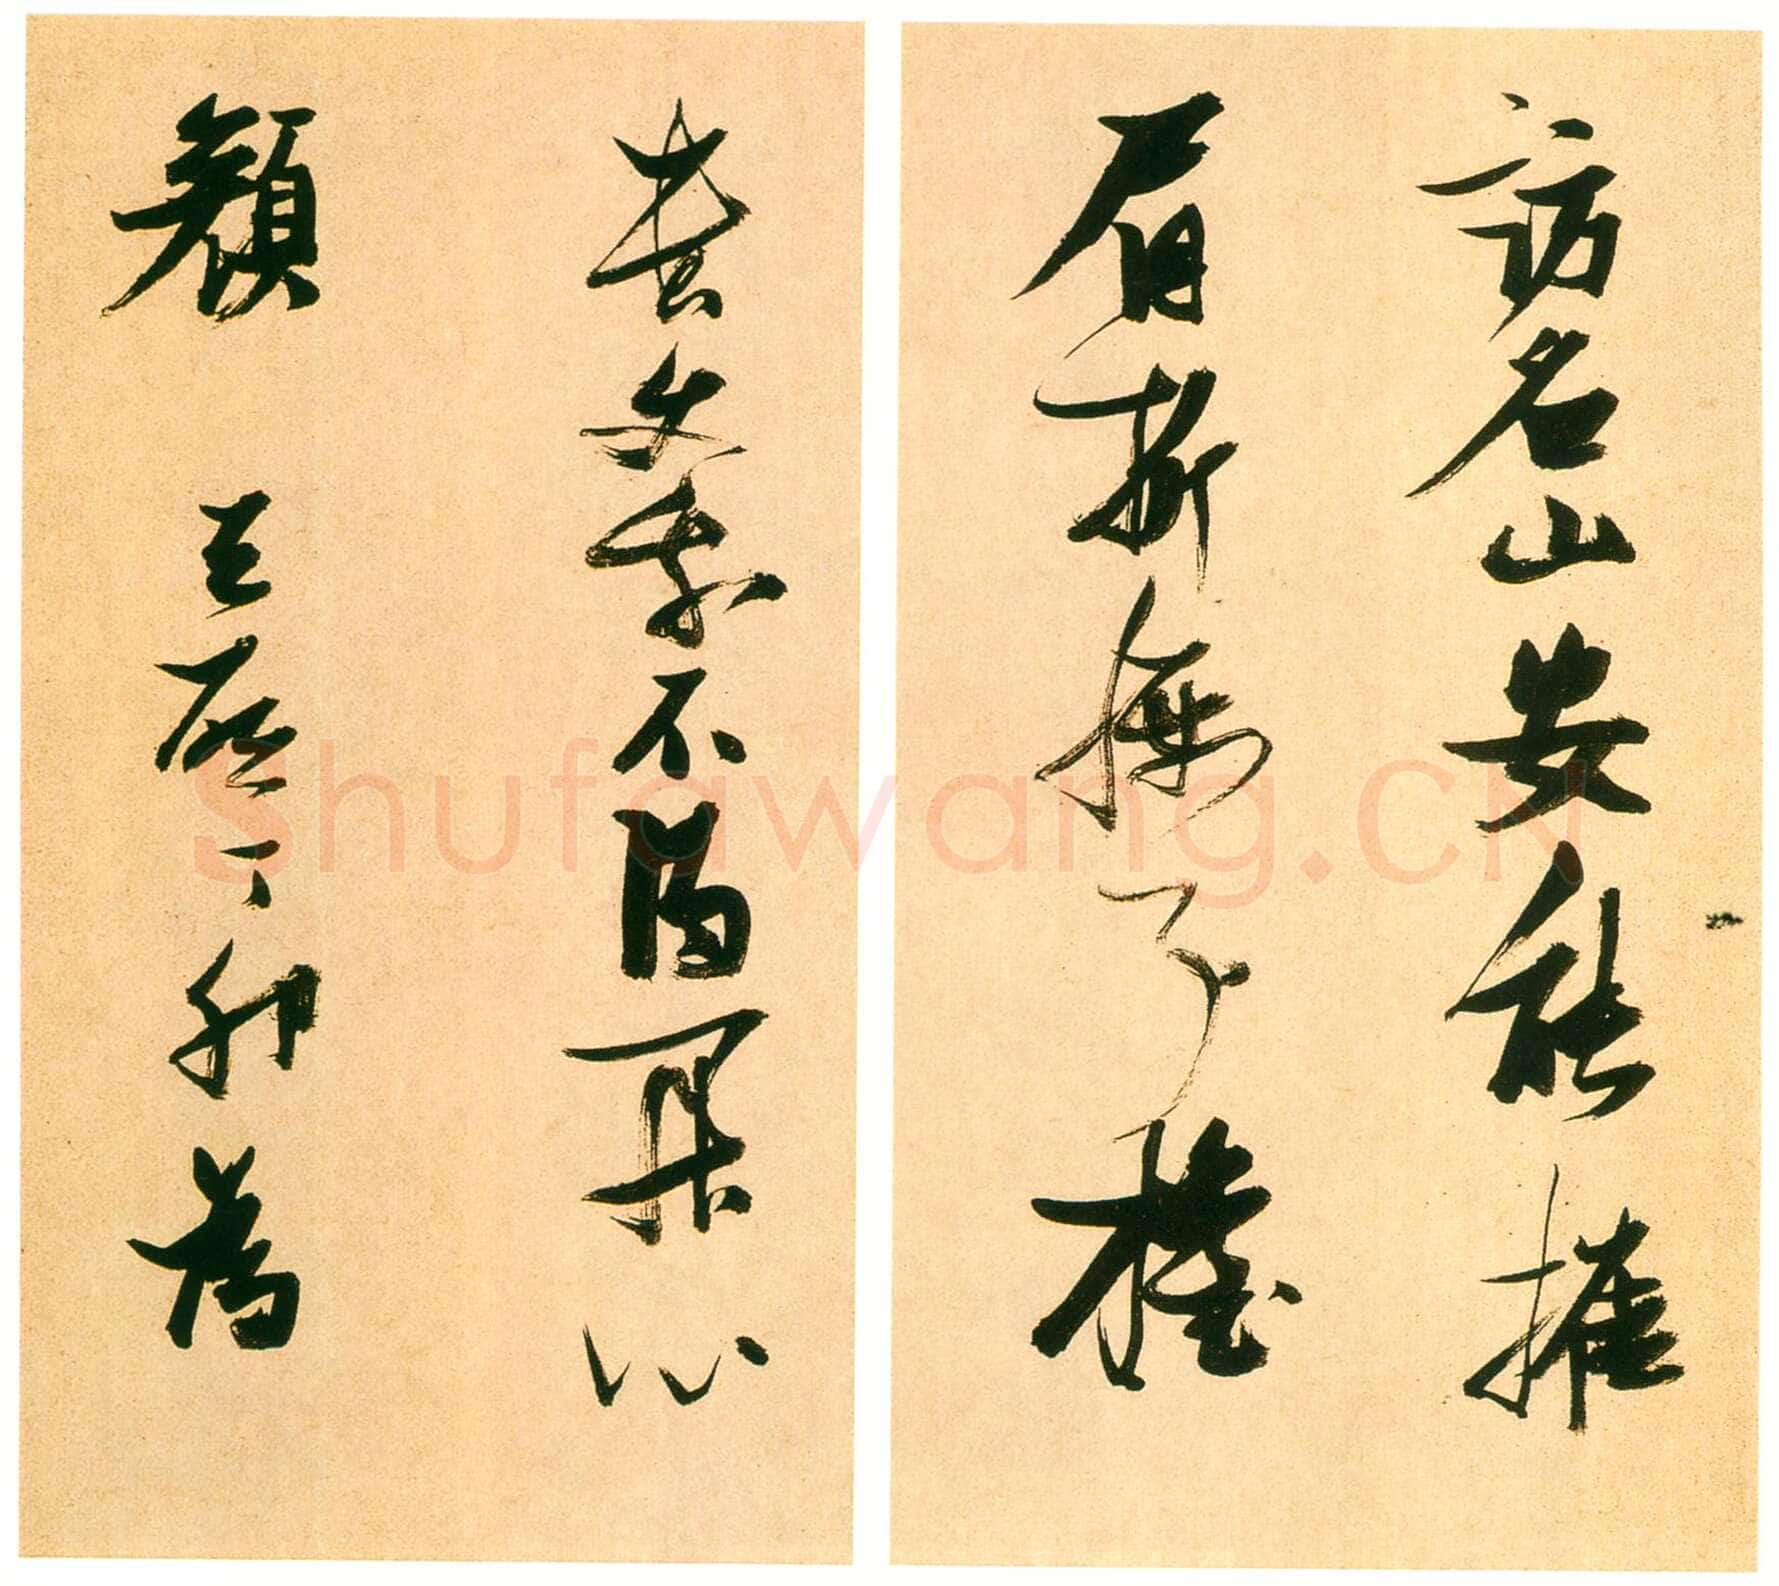 訪名山安能摧
眉折腰事權
貴使我不得開心
顏 天啟丁卯為
Shufawang.CN